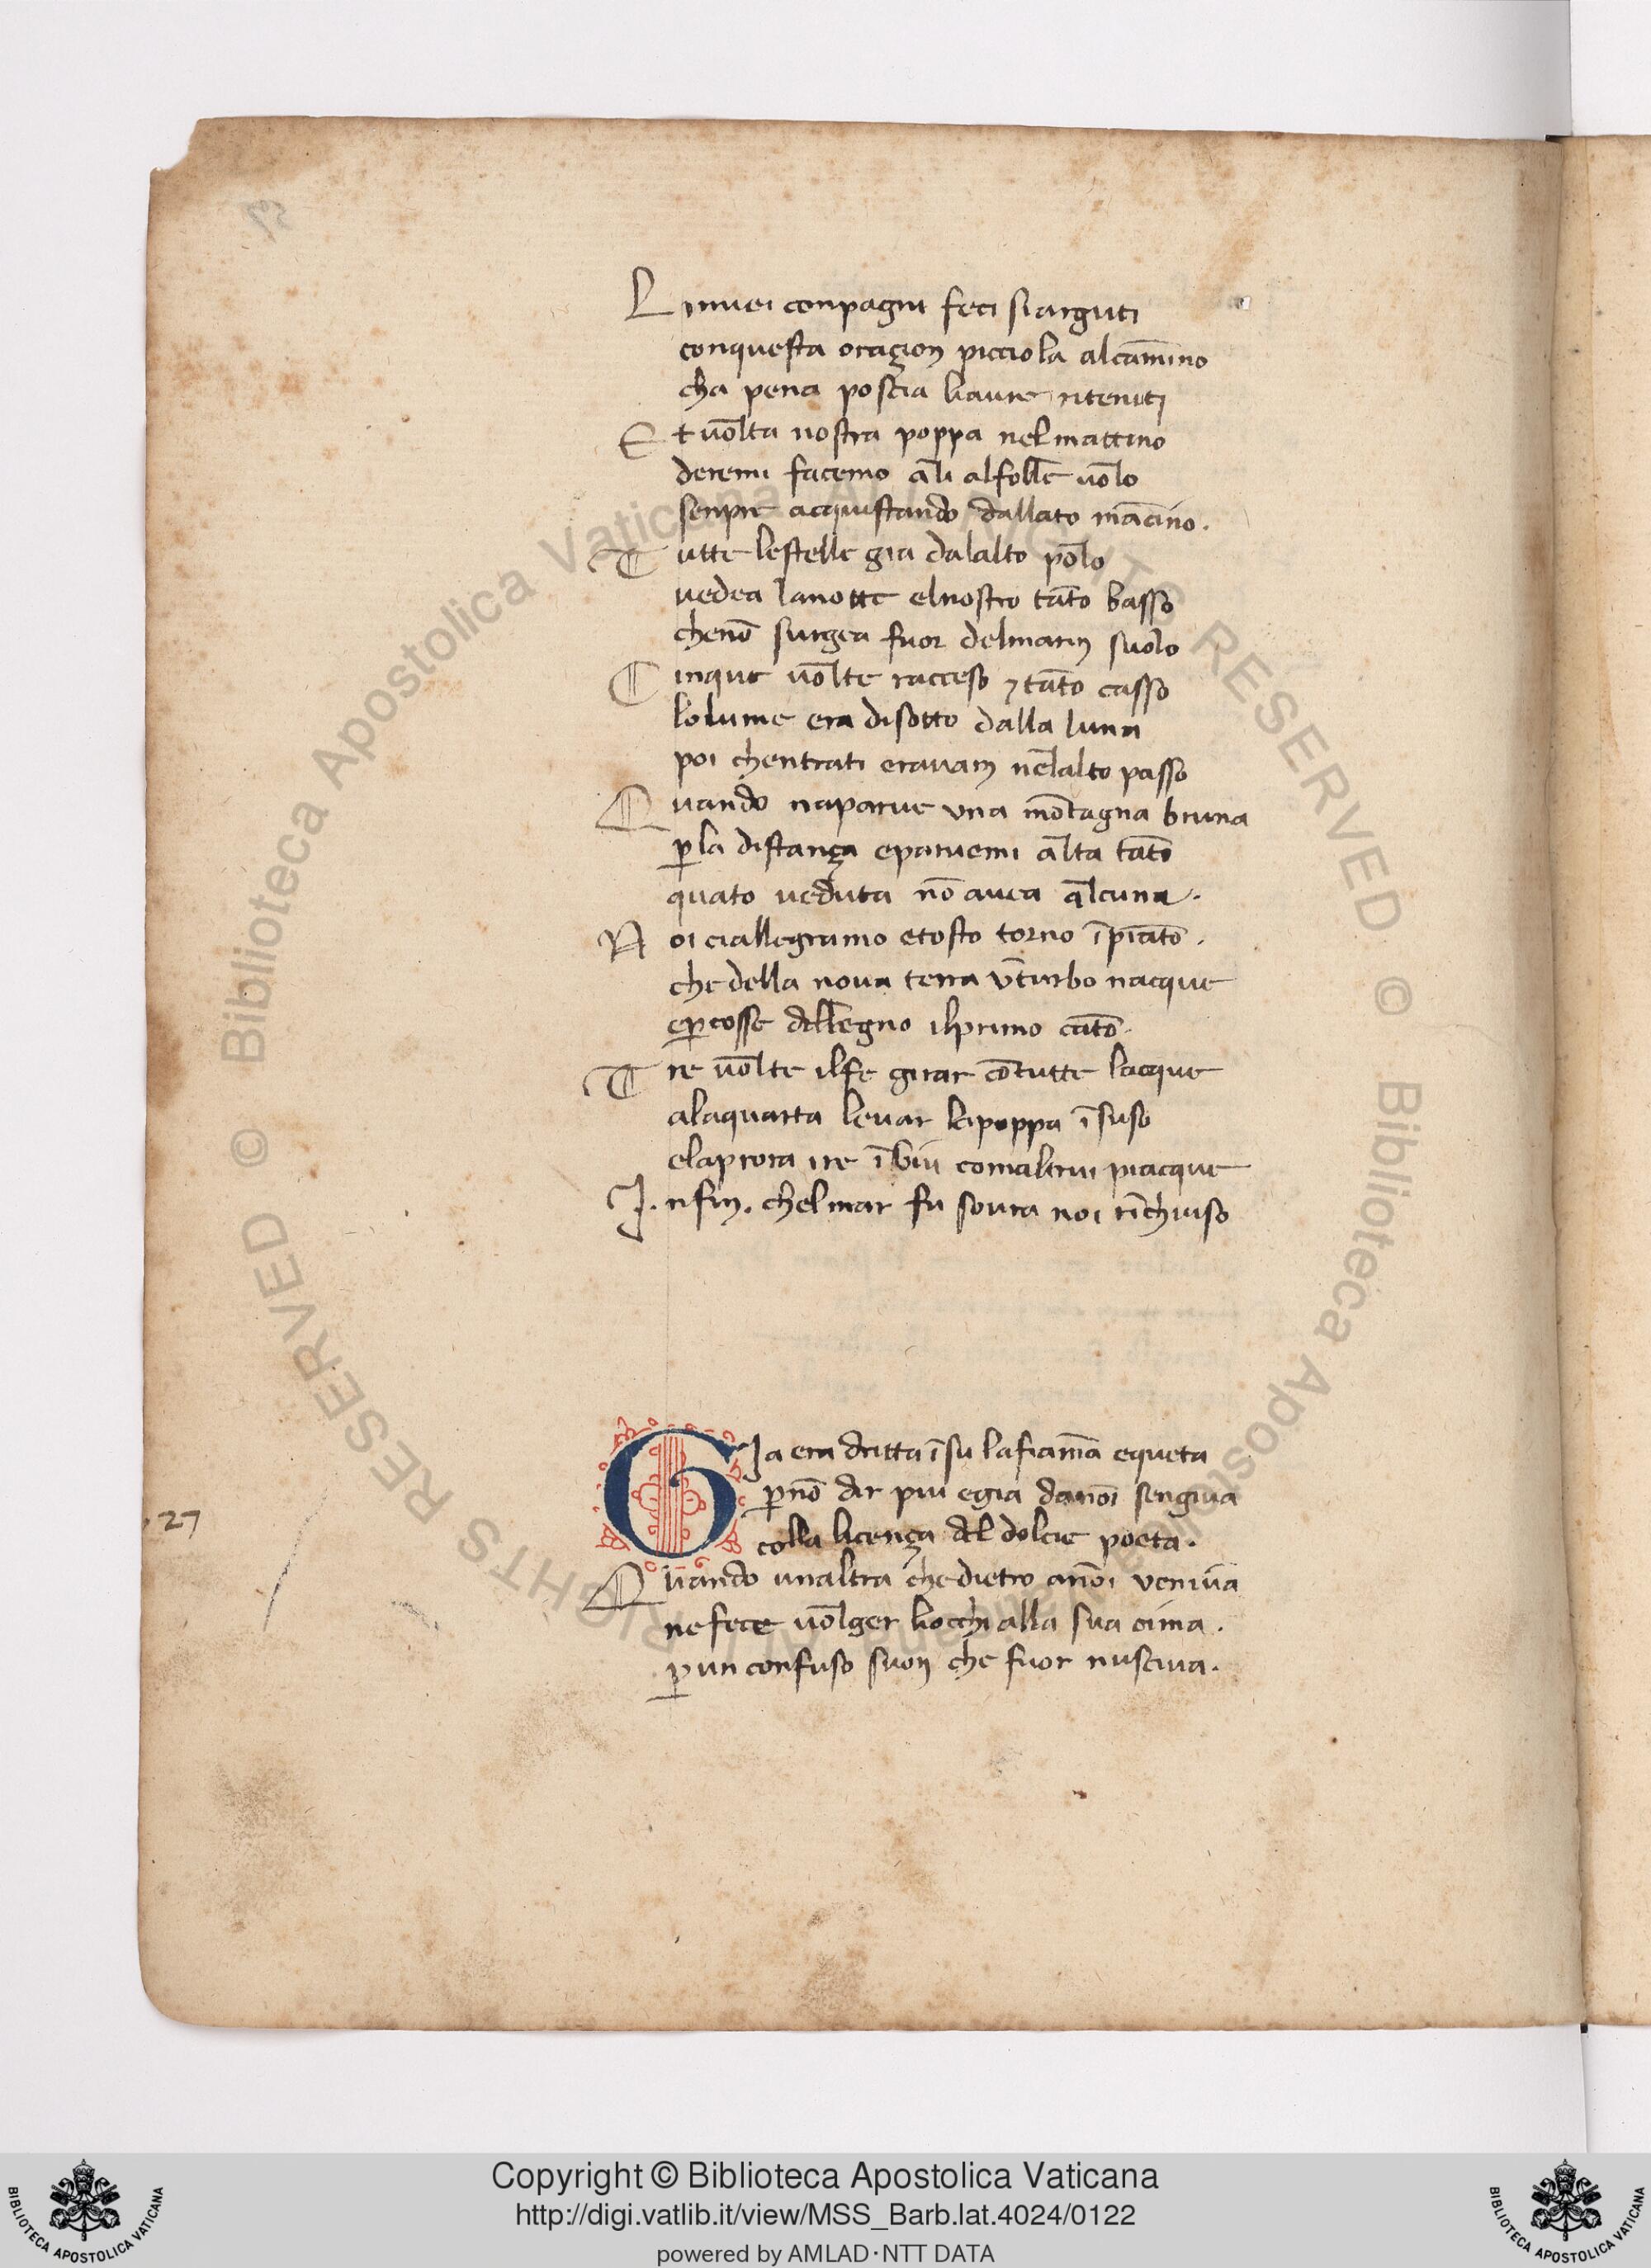 L imiei conpagni feci siarguti
conquesta oraçion picciola alcam̄ino
cha pena poscia liaurie ritenuti
E t uolta nostra poppa nelmattino
deremi facemo ali alfolle uolo
senpre acquistando dallato mācino.
T utte lestelle gia dalalto polo
uedea lanotte elnostro tāto basso
chenō surgea fuor delmarin suolo
C inque uolte racceso ⁊ tāto casso
lolume era disotto dalla luna
poi chentrati erauam nelalto passo
Q uando naparue una mōtagna bruna
p̱la distança eparuemi alta tāto
quato ueduta nō auea alcuna.
N oi ciallegramo etosto torno ī piāto.
che della noua terra ūturbo nacque
ep̱cosse dellegno ilprimo cāto.
T re uolte ilfe girar cōtutte lacque
alaquarta leuar lapoppa ī suso
elaprora ire ī giu comaltrui piacque
I. nfin. chelmar fu soura noi rīchiuso
G Ia era dritta ī su lafiam̄a equeta
p̱nō dir piu egia danoi sengiua
colla licença del dolcie poeta.
27
Q uando unaltra chedietro anoi ueniua
nefece uolger liocchi alla sua cima.
p̱un confuso suon che fuor nusciua.
© Biblioteca Apostolica Vaticana ALL RIGHTS RESERVED
© Biblioteca Apostolica Vaticana ALL RIGHTS RESERVED
Copyright © Biblioteca Apostolica Vaticana
http://digi.vatlib.it/view/MSS_Barb.lat.4024/0122
powered by AMLAD·NTT DATA
BIBLIOTECA APOSTOLICA VATICANA
BIBLIOTECA APOSTOLICA VATICANA